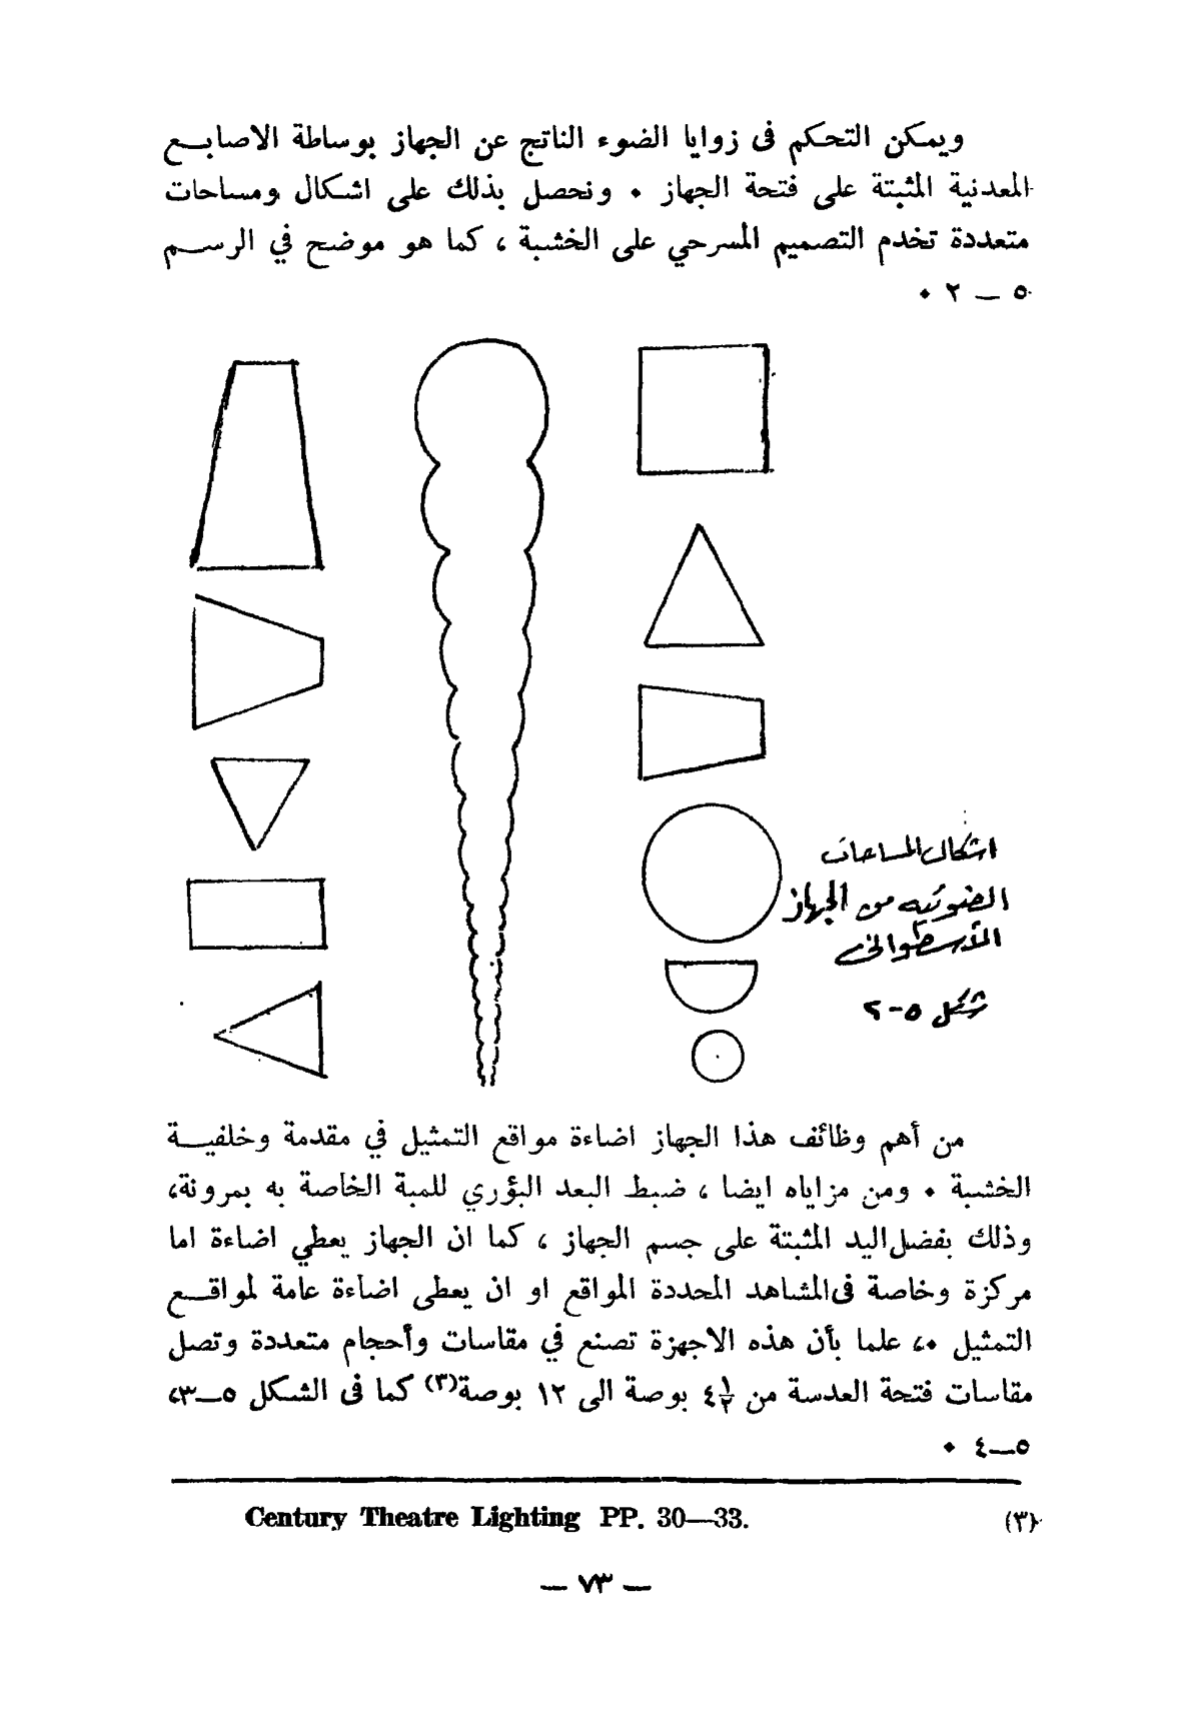 ويمكن التحكم فى زوايا الضوء الناتج عن الجهاز بوساطة الاصابــع
المعدنية المثبتة على فتحة الجهاز ٠ ونحصل بذلك على اشكال ومساحات
متعددة تخدم التصميم المسرحي على الخشبة ، كما هو موضح في الرســم
٥ ــ ٢ ٠
اشكال المساحات
الضوئيه من الجهاز
الأسطواني
شكل ٥-٢
من أهم وظائف هذا الجهاز اضاءة مواقع التمثيل في مقدمة وخلفيــة
الخشبة ٠ ومن مزاياه ايضا ، ضبط البعد البؤري للمبة الخاصة به بمرونة،
وذلك بفضل اليد المثبتة على جسم الجهاز ، كما ان الجهاز يعطي اضاءة اما
مركزة وخاصة فى المشاهد المحددة المواقع او ان يعطى اضاءة عامة لمواقــع
التمثيل ٠، علما بأن هذه الاجهزة تصنع في مقاسات وأحجام متعددة وتصل
مقاسات فتحة العدسة من ٤½ بوصة الى ١٢ بوصة(٣) كما فى الشكل ٥ــ٣،
٥ــ٤ ٠
(٣) Century Theatre Lighting PP. 30—33.
— ٧٣ —